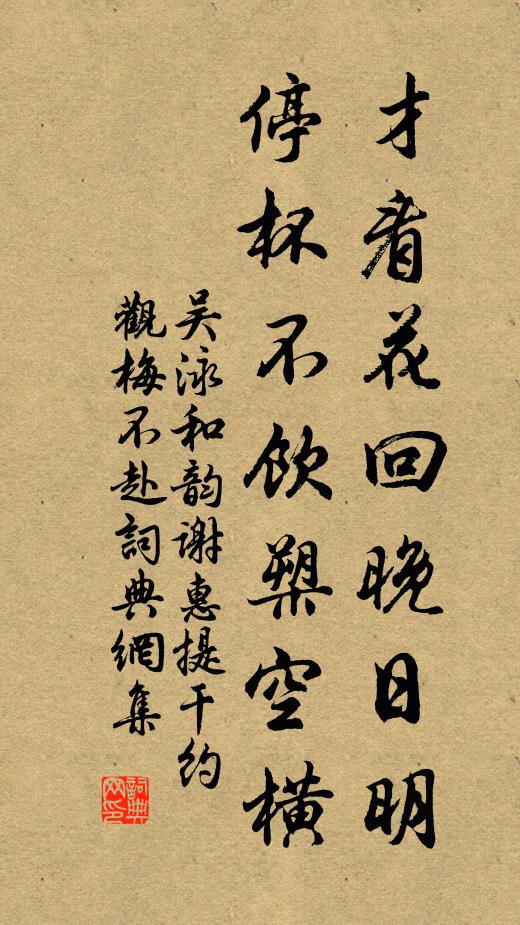 才看花回晚日明
停杯不饮槊空横
吴泳和韵谢惠提干约
觀梅不赴詞典網集
詞典网印